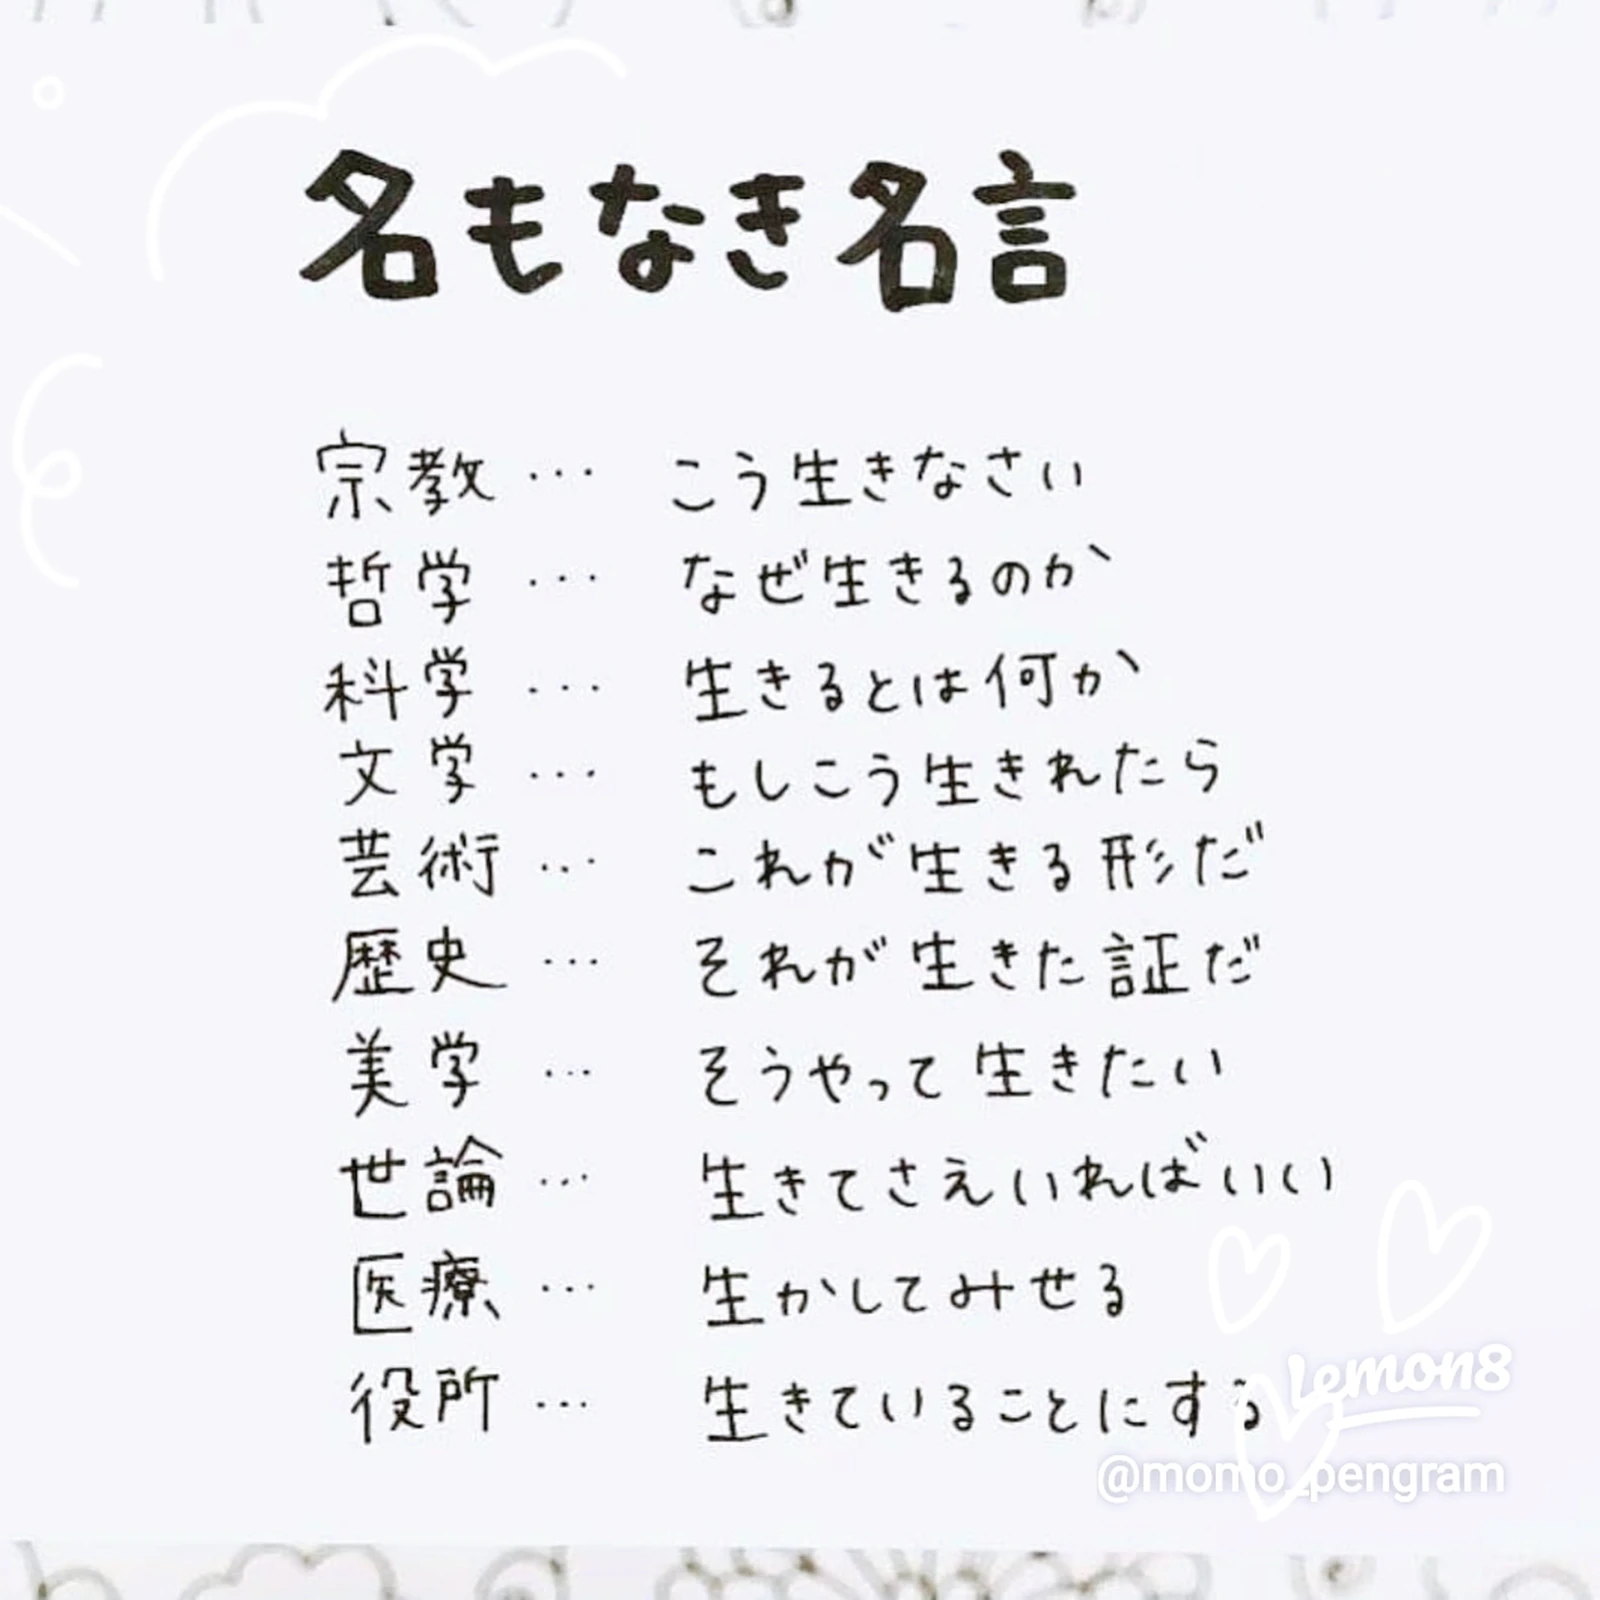 名もなき名言
宗教… こう生きなさい
哲学… なぜ生きるのか
科学… 生きるとは何か
文学… もしこう生きれたら
芸術… これが生きる形だ
歴史… それが生きた証だ
美学… そうやって生きたい
世論… 生きてさえいればいい
医療… 生かしてみせる
役所… 生きていることにする
Lemon8
@momo_pengram